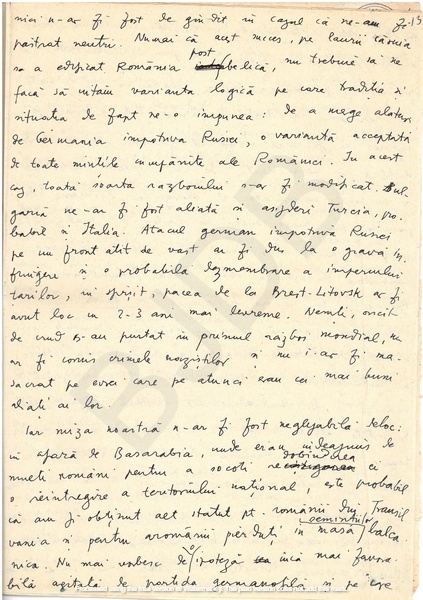 nici n-ar fi fost de gîndit în cazul că ne-am fi 15
păstrat neutri. Numai că acest succes, pe laurii căruia
s-a edificat România postbelică, nu trebuie să ne
facă să uităm varianta logică pe care tradiția și
situația de fapt ne-o impunea: de a merge alături
de Germania împotriva Rusiei, o variantă acceptată
de toate mințile cumpănite ale României. În acest
caz, toată soarta războiului s-ar fi modificat. Bul-
garia ne-ar fi fost aliată și asijderi Turcia, pro-
babil și Italia. Atacul german împotriva Rusiei
pe un front atît de vast ar fi dus la o gravă în-
frîngere și o probabilă dezmembrare a imperiului
țarilor, în sfîrșit, pacea de la Brest-Litovsk ar fi
avut loc cu 2-3 ani mai devreme. Nemții, oricît
de crud s-au purtat în primul război mondial, nu
ar fi comis crimele naziștilor și nu i-ar fi ma-
sacrat pe evrei care pe atunci erau cei mai buni
aliați ai lor.
Iar miza noastră n-ar fi fost neglijabilă deloc:
în afară de Basarabia, unde erau îndeajuns de
mulți români pentru a socoti redobîndirea ei
o reîntregire a teritoriului național, este probabil
că am fi obținut alt statut pt. românii din Transil-
vania și pentru aromânii pierduți în masa semințiilor balca-
nica. Nu mai vorbesc de ipoteza încă mai favora-
bilă agitată de partida germanofilă și pe care